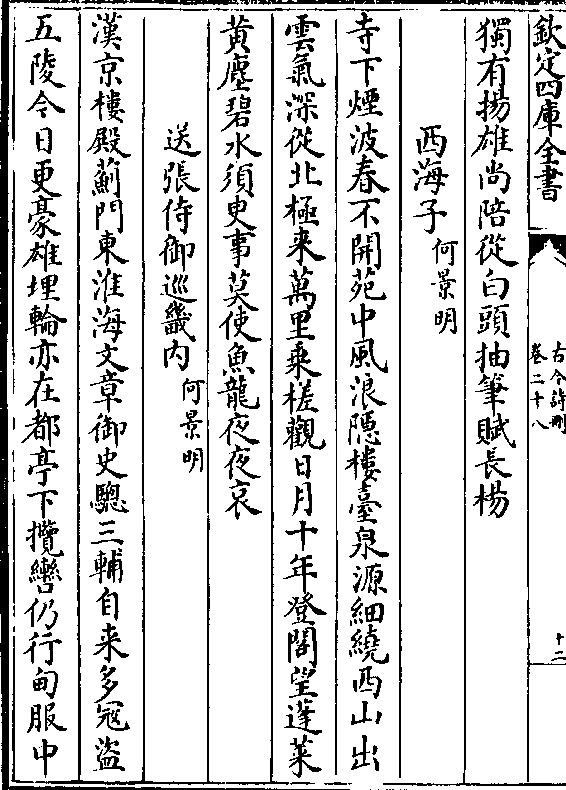 欽定四庫全書
古今詩刪
卷二十八
十二
獨有揚雄尚陪從白頭抽筆賦長楊
西海子 何景明
寺下煙波春不開苑中風浪隱樓臺泉源細繞西山出
雲氣深從北極来萬里乗槎觀日月十年登閣望蓬萊
黄塵碧水須史事莫使魚龍夜夜哀
送張侍御巡畿内 何景明
漢京樓殿薊門東淮海文章御史驄三輔自来多冦盗
五陵今日更豪雄埋輪亦在都亭下攬轡仍行甸服中